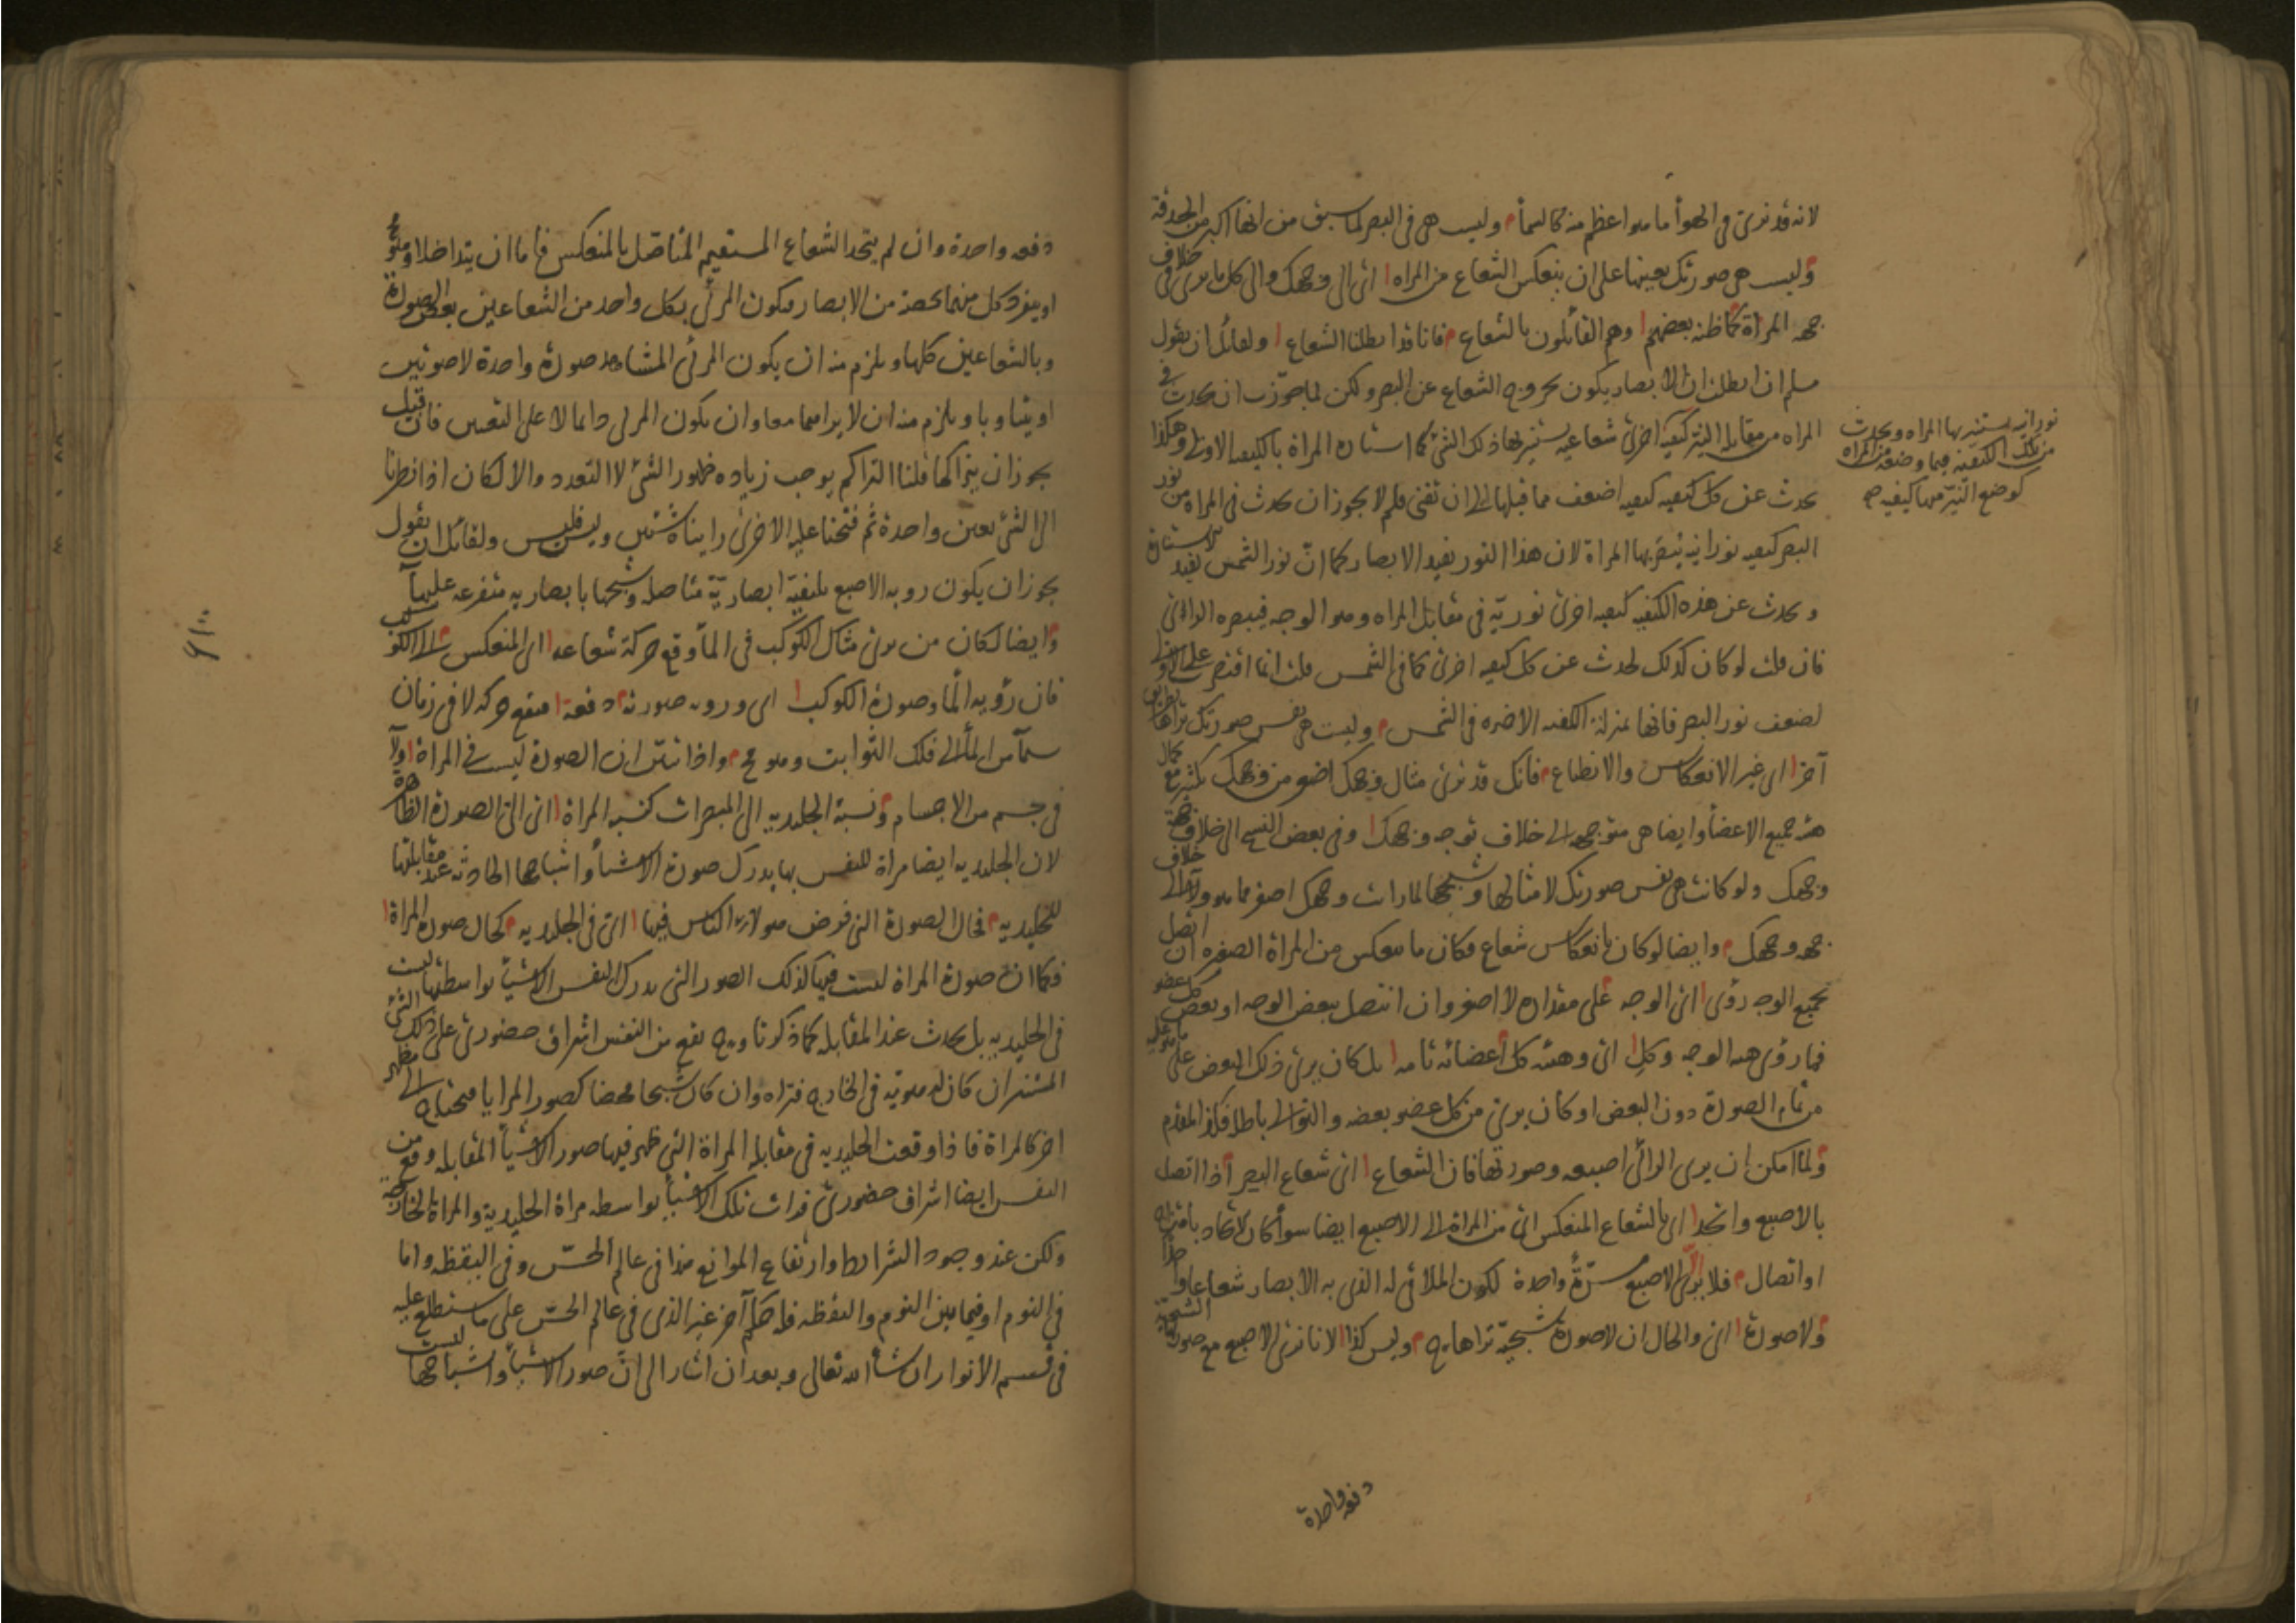 لانه قد نرى فى الهوأ ما هو اعظم منه كالسمأ وليست هى فى البصر لما سبق من انها اكبر من الحدقة
وليست هى صورتك بعينها على ان ينعكس الشعاع من المراه اى الى وجهك والى كل ما يرى فى خلاف
جهه المراة كما ظنه بعضهم وهم القائلون بالشعاع فانا قد ابطلنا الشعاع ولقائل ان يقول
سلم ان ابطلت ان الابصار يكون بخروج الشعاع عن البصر ولكن لما جوزت ان يحدث فى
المراه من مقابله النير كيفيه اخرى شعاعيه يستنير بها ذلك الشئ كما استناره المراة بالكيفيه الاولى وهكذا
يحدث عن كل كيفيه كيفيه اضعف مما قبلها الى ان تفنى فلم لا يجوز ان يحدث فى المراه من نور
البصر كيفيه نورانيه يبصر بها المراة لان هذا النور يفيد الابصار كما ان نور الشمس يفيد الاستنارة
و يحدث عن هذه الكيفيه كيفيه اخرى نوريّة فى مقابل المراه وهو الوجه فيبصره الرائى
فان قلت لو كان كذلك لحدث عن كل كيفيه اخرى كما فى الشمس قلت انما اقتصر على الاولى
لضعف نور البصر فانها بمنزلة الكيفيه الاخيره فى الشمس وليست هى نفس صورتك تراها بطريق
آخر اى غير الانعكاس والانطباع فانك قد ترى مثال وجهك اصغر من وجهك بكثير مع كمال
هيئه جميع الاعضأ وايضا هى متوجهه الى خلاف توجه وجهك وفى بعض النسخ الى خلاف جهة
وجهك ولو كانت هى نفس صورتك لا مثالها وشبحها لما رات وجهك اصغر مما هو ولا الى خلاف
جهه وجهك وايضا لو كان بانعكاس شعاع فكان ما ينعكس من المراة الصغيره ان اتصل
بجميع الوجه رؤى اى الوجه على مقداره لا اصغر وان اتصل ببعض الوجه او بعض كل عضو
فما رؤى هيئه الوجه وكل اى وهيئه كل اعضائه تامه بل كان يرى ذلك البعض على ما هو عليه
من تمام الصورة دون البعض او كان يرى من كل عضو بعضه والتوالى باطله فكذا المقدم
ولما امكن ان يرى الرائى اصبعه وصورتها فان الشعاع اى شعاع البصر اذا اتصل
بالاصبع واتحد اى بالشعاع المنعكس اى من المراة الى الاصبع ايضا سوأ كان الاتحاد بامتزاج
او اتصال فلا يرى الا الاصبع مرّةً واحدة لكون الملاقى له الذى به الابصار شعاعا واحدا
ولا صورة اى والحال ان لا صورة شبحيّة تراها ح وليس كذا لانا نرى الاصبع مع صورتها الشبحيّة
نورانيه يستنير بها المراه ويحدث
من تلك الكيفية فيما وضعه من المراه
كوضع النيّر منها كيفيه صح
دفعه واحدة
دفعه واحدة وان لم يتحد الشعاع المستقيم المتاصّل بالمنعكس فاما ان يتداخلا وهو مح
او ينفرد كل منهما بحصة من الابصار فيكون المرئى بكل واحد من الشعاعين بعض الصورة
وبالشعاعين كلها ويلزم منه ان يكون المرئى المشاهد صورة واحدة لا صورتين
او يتناوبا ويلزم منه ان لا يراهما معا وان يكون المرئى دائما لا على التعيين فان قيل
يجوز ان يتراكما قلنا التراكم يوجب زياده ظهور الشئ لا التعدد والا لكان اذا نظرنا
الى الشئ بعين واحدة ثم فتحنا عليه الاخرى راينا شيئين وليس فليس ولقائل ان يقول
يجوز ان يكون رويه الاصبع بكيفيّة ابصاريّة متاصله وشبحها بابصاريه متفرعه عليها
وايضا لكان من يرى مثال الكوكب فى المأ وقع حركة شعاعه اى المنعكس الى الكوكب
فان رؤيه المأ وصورة الكوكب اى ورويه صورته دفعة فيقع حركه لا فى زمان
سيما من المأ الى فلك الثوابت وهو مح واذا تبيّن ان الصورة ليست فى المراة ولا
فى جسم من الاجسام ونسبة الجليديه الى المبصرات كنسبه المراة اى الى الصورة الظاهرة
لان الجليديه ايضا مراة للنفس بها يدرك صورة الاشيأ واشباحها الحادثه عند مقابلتها
للجليديه فحال الصورة التى فرض هولاء الناس فيها اى فى الجليديه كحال صورة المراة
فكما ان صورة المراة ليست فيها كذلك الصور التى يدرك النفس الاشيأ بواسطتها ليست
فى الجليديه بل يحدث عند المقابله كما ذكرنا وح يقع من النفس اشراق حضورى على ذلك الشئ
المستنير ان كان له هويّه فى الخارج فتراه وان كان شبحا محضا كصور المرايا فيحتاج الى مظهر
اخر كالمراة فاذا وقعت الجليديه فى مقابله المراة التى ظهر فيها صور الاشيأ المقابله وقع من
النفس ايضا اشراق حضورى فرات تلك الاشيأ بواسطه مراة الجليدية والمراة الخارجية
ولكن عند وجود الشرائط وارتفاع الموانع هذا فى عالم الحسّ وفى اليقظه واما
فى النوم او فيما بين النوم واليقظه فله حكم آخر غير الذى فى عالم الحسّ على ما ستطلع عليه
فى قسم الانوار ان شأ الله تعالى وبعد ان اشار الى انّ صور الاشيأ واشباحها ليست